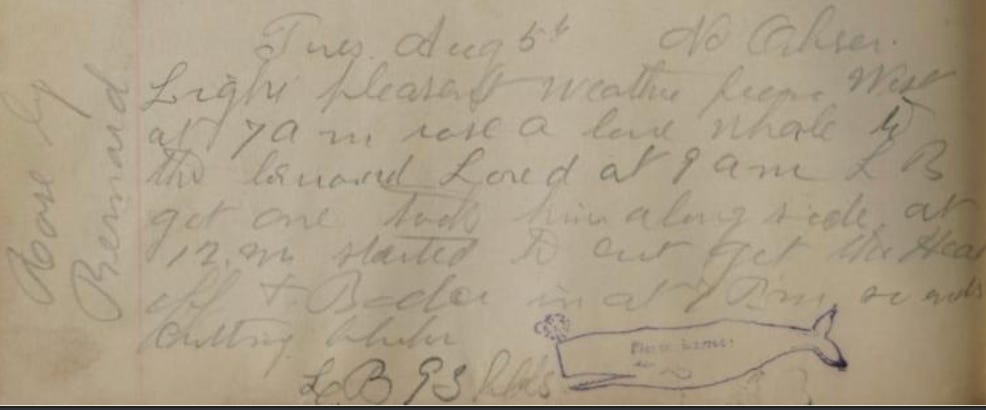 Rose by
Bernard
Tues Aug 5th No Obser.
Light pleasant weather from West
at 7 a m rose a lone whale to
the leeward Lored at 9 am L B
get one took him along side. at
12. m started to cut get the Head
off + Bodie in at 7 P.m, so ends
Cutting blubber
L B 93 bbls